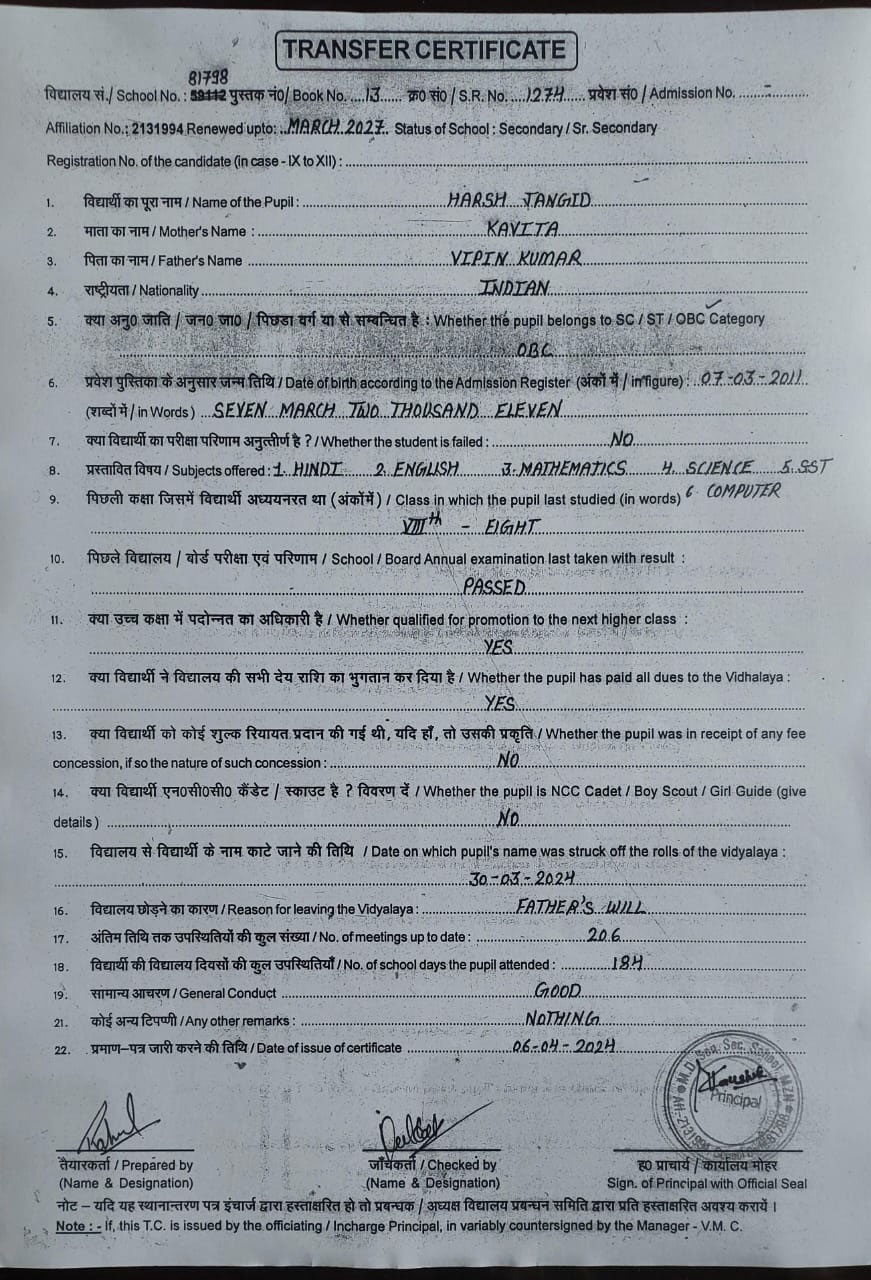 TRANSFER CERTIFICATE
81798
विद्यालय सं./ School No. : 59112 पुस्तक नं0/ Book No. ....13...... क्र0 सं0 / S.R. No. ....1274...... प्रवेश सं0 / Admission No. ........-........
Affiliation No.; 2131994 Renewed upto: ..MARCH.2027. Status of School : Secondary / Sr. Secondary
Registration No. of the candidate (in case - IX to XII) : ........
1. विद्यार्थी का पूरा नाम / Name of the Pupil : ........ HARSH JANGID ........
2. माता का नाम / Mother's Name : ........ KAVITA ........
3. पिता का नाम / Father's Name ........ VIPIN KUMAR ........
4. राष्ट्रीयता / Nationality ........ INDIAN ........
5. क्या अनु0 जाति / जन0 जा0 / पिछडा वर्ग या से सम्बन्धित है : Whether the pupil belongs to SC / ST / OBC Category
........ OBC ........
6. प्रवेश पुस्तिका के अनुसार जन्म तिथि / Date of birth according to the Admission Register (अंकों में / in figure) : 07-03-2011
(शब्दों में / in Words ) ... SEVEN MARCH TWO THOUSAND ELEVEN ........
7. क्या विद्यार्थी का परीक्षा परिणाम अनुत्तीर्ण है ? / Whether the student is failed : ........ NO ........
8. प्रस्तावित विषय / Subjects offered : 1. HINDI 2. ENGLISH 3. MATHEMATICS 4. SCIENCE 5. SST
9. पिछली कक्षा जिसमें विद्यार्थी अध्ययनरत था (अंकोंमें) / Class in which the pupil last studied (in words) 6 COMPUTER
........ VIIIth - EIGHT ........
10. पिछले विद्यालय / बोर्ड परीक्षा एवं परिणाम / School / Board Annual examination last taken with result :
........ PASSED ........
11. क्या उच्च कक्षा में पदोन्नत का अधिकारी है / Whether qualified for promotion to the next higher class :
........ YES ........
12. क्या विद्यार्थी ने विद्यालय की सभी देय राशि का भुगतान कर दिया है / Whether the pupil has paid all dues to the Vidhalaya :
........ YES ........
13. क्या विद्यार्थी को कोई शुल्क रियायत प्रदान की गई थी, यदि हाँ, तो उसकी प्रकृति / Whether the pupil was in receipt of any fee
concession, if so the nature of such concession : ........ NO ........
14. क्या विद्यार्थी एन0सी0सी0 कैंडेट / स्काउट है ? विवरण दें / Whether the pupil is NCC Cadet / Boy Scout / Girl Guide (give
details ) ........ NO ........
15. विद्यालय से विद्यार्थी के नाम काटे जाने की तिथि / Date on which pupil's name was struck off the rolls of the vidyalaya :
........ 30-03-2024 ........
16. विद्यालय छोड़ने का कारण / Reason for leaving the Vidyalaya : ........ FATHER'S WILL ........
17. अंतिम तिथि तक उपस्थितियों की कुल संख्या / No. of meetings up to date : ........ 206 ........
18. विद्यार्थी की विद्यालय दिवसों की कुल उपस्थितियाँ / No. of school days the pupil attended : ........ 184 ........
19. सामान्य आचरण / General Conduct ........ GOOD ........
21. कोई अन्य टिपणी / Any other remarks : ........ NOTHING ........
22. प्रमाण–पत्र जारी करने की तिथि / Date of issue of certificate ........ 06-04-2024 ........
M.D. Seo. Sec. School, MZN
Principal
तैयारकर्ता / Prepared by जाँचकर्ता / Checked by ह0 प्राचार्य / कार्यालय मोहर
(Name & Designation) (Name & Designation) Sign. of Principal with Official Seal
नोट – यदि यह स्थानान्तरण पत्र इंचार्ज द्वारा हस्ताक्षरित हो तो प्रबन्धक / अध्यक्ष विद्यालय प्रबन्धन समिति द्वारा प्रति हस्ताक्षरित अवश्य करायें ।
Note : - If, this T.C. is issued by the officiating / Incharge Principal, in variably countersigned by the Manager - V.M. C.